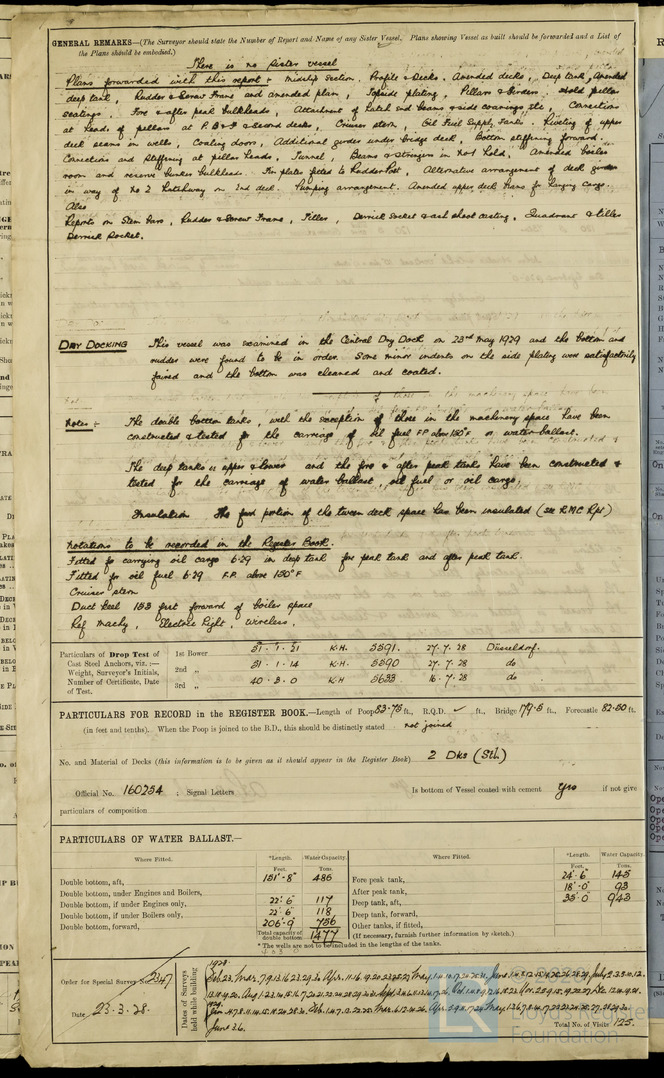 GENERAL REMARKS—(The Surveyor should state the Number of Report and Name of any Sister Vessel. Plans showing Vessel as built should be forwarded and a List of
the Plans should be embodied.)
There is no Sister vessel
Plans forwarded with this report :- Midship Section. Profile & Decks. Amended decks, Deep tank, Amended
deep tank, Rudder & Screw Frame and amended plan, Topside plating, Pillars & Girders. Hold pillar
seatings. Fore & after peak bulkheads, Attachment of hatch end beams & side coamings etc, Connections
at heads of pillars at P.B & F & Second decks, Cruiser stern, Oil Fuel Supply Tanks. Riveting of upper
deck seams in wells, Coaling doors, Additional girder under bridge deck, Bottom stiffening forward.
Connections and stiffening at pillar heads, Tunnel, Beams & Stringers in No 1 hold, Amended boiler
room and reserve bunker bulkheads. Fin plates fitted to Rudder Post, Alternative arrangement of deck girder
in way of No 2 Hatchway on 2nd deck. Pumping arrangement. Amended upper deck trans for hanging cargo.
Also
Reports on Stem bars, Rudder & Screw Frame, Tiller, Derrick Socket & ash shoot casting, Quadrant & tiller
Derrick Socket.
DRY DOCKING This vessel was examined in the Central Dry Dock on 23rd May 1929 and the bottom and
rudder were found to be in order. Some minor indents on the side plating were satisfactorily
faired and the bottom was cleaned and coated.
Notes :- The double bottom tanks, with the exception of those in the machinery space have been
constructed & tested for the carriage of oil fuel F.P. above 150°F or water ballast.
The deep tanks upper & lower and the fore & after peak tanks have been constructed &
tested for the carriage of water ballast, oil fuel or oil cargo.
Insulation The ford portion of the tween deck space has been insulated (see R.M.C Rpt)
Notations to be recorded in the Register Book.
Fitted for carrying oil cargo 6.29 in deep tank fore peak tank and after peak tank.
Fitted for oil fuel 6.29 F.P. above 150°F
Cruiser stern
Duct keel 153 feet forward of boiler space
Ref Machy, Electric Light, Wireless.
Particulars of Drop Test of
Cast Steel Anchors, viz. :—
Weight, Surveyor's Initials,
Number of Certificate, Date
of Test.
1st Bower 51 . 1 . 21 K.H. 5591. 27.7.28 Düsseldorf.
2nd „ 51 . 1 . 14 K.H. 5590 27.7.28 do
3rd „ 40 . 3 . 0 K.H 5633 16.7.28 do
PARTICULARS FOR RECORD in the REGISTER BOOK.—Length of Poop 53.75 ft., R.Q.D. ✓ ft., Bridge 179.5 ft., Forecastle 82.50 ft.
(in feet and tenths). When the Poop is joined to the B.D., this should be distinctly stated not joined
No. and Material of Decks (this information is to be given as it should appear in the Register Book) 2 Dks (Stl)
Official No. 160254 ; Signal Letters Is bottom of Vessel coated with cement yes if not give
particulars of composition
PARTICULARS OF WATER BALLAST.—
Where Fitted. *Length. Water Capacity. Where Fitted. *Length. Water Capacity.
Feet. Tons. Feet. Tons.
Double bottom, aft, 151'-8" 486 Fore peak tank, 24'.6" 145
Double bottom, under Engines and Boilers, After peak tank, 18'.0" 93
Double bottom, if under Engines only, 22'.6" 117 Deep tank, aft, 35'.0" 943
Double bottom, if under Boilers only, 22'.6" 118 Deep tank, forward,
Double bottom, forward, 206'.9" 756 Other tanks, if fitted,
Total capacity of double bottom 1477 (If necessary, furnish further information by sketch.)
* The wells are not to be included in the lengths of the tanks.
Order for Special Survey 2347
Date 23.3.28.
Dates of Surveys
held while building
1928
1929
June 26.
Total No. of Visits 125.
Lloyd's Register
Foundation